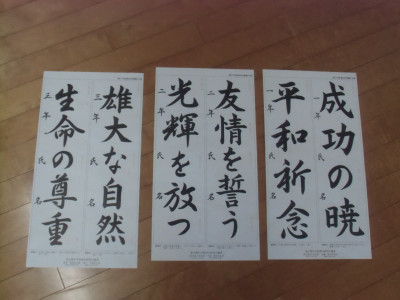 成功の暁
一年 氏名
平和祈念
一年 氏名
友情を誓う
二年 氏名
光輝を放つ
二年 氏名
雄大な自然
三年 氏名
生命の尊重
三年 氏名